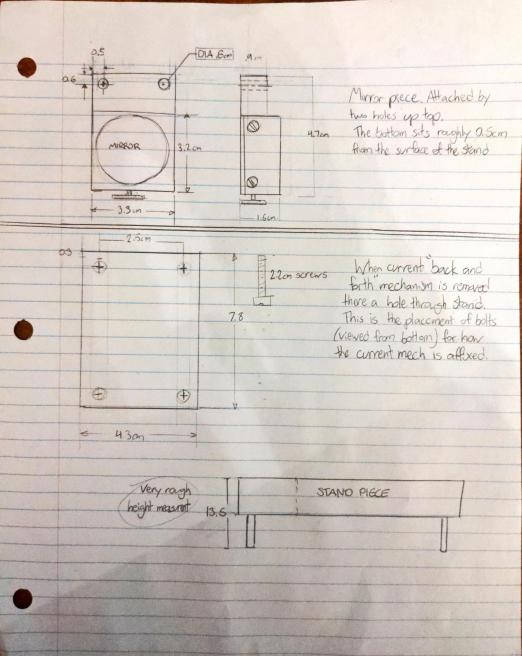 0.5
DIA .6cm
0.6
Mirror piece. Attached by
two holes up top.
The bottom sits roughly 0.5cm
from the surface of the stand
MIRROR
3.2cm
4.7cm
3.3cm
1.6cm
2.5cm
2.2cm screws
7.8
When current "back and
forth" mechanism is removed
there a hole through stand.
This is the placement of bolts
(viewed from bottom) for how
the current mech is affixed.
4.3cm
Very rough
height measrent
13.5
STAND PIECE